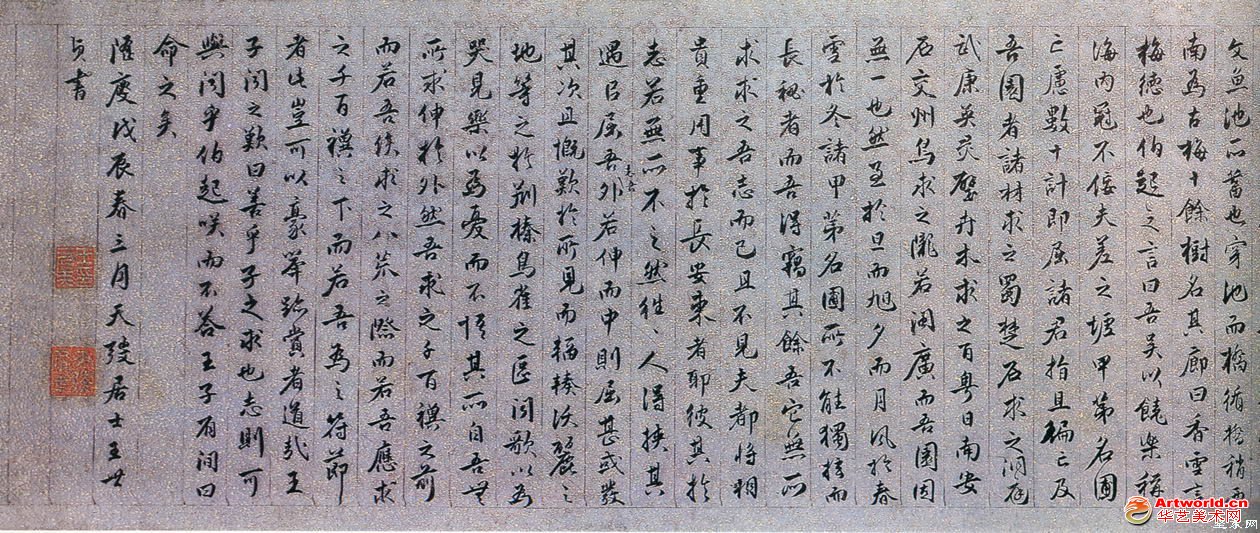 文魚池所蓄也穿池而橋循橋稍西
南為古梅十餘樹名其廊曰香雪言
梅德也伯起之言曰吾吳以饒樂稱
海內冠不佞夫差之墟甲第名圃
亡慮數十計即屈諸君指且徧亡及
吾園者諸材求之蜀楚石求之洞庭
武康英靈壁卉木求之百粵日南安
石交州鳥求之隴若閩廣而吾園固
無一也然至於旦而旭夕而月風於春
雪於冬諸甲第名圃所不能獨擅而
長秘者而吾得竊其餘吾它無所
求求之吾志而已且不見夫都將相
貴重用事於長安東者耶彼其於
志若無所不之然往往人得挾其
遇以屈吾志吾外若伸而中則屈甚或發
其次且慨歎於所見而輻輳沃麗之
地等之於荊榛鳥雀之區聞歌以為
哭見樂以為憂而不悟其所自吾無
所求伸於外然吾求之千百禩之前
而若吾俟求之八荒之際而若吾應求
之千百禩之下而若吾為之符節
者此豈可以豪舉跡賞者道哉王
子聞之歎曰善乎子之求也志則可
與聞乎伯起咲而不答王子有間曰
命之矣
隆慶戊辰春三月天弢居士王世
貞書
Artworld.cn
华艺美术网